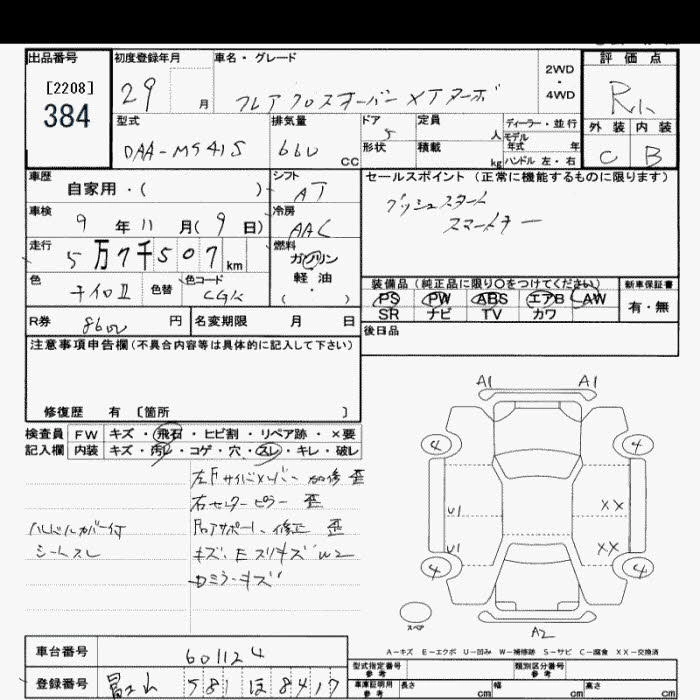 出品番号
[2208]
384
初度登録年月
29 月
車名・グレード
フレアクロスオーバー XTターボ
2WD
・
4WD
評価点
外装 内装
C B
型式
DAA-MS41S
排気量
660 cc
ドア
5
形状
定員 人
積載 kg
ディーラー・並行
モデル
年式 年
ハンドル 左・右
車歴
自家用・( )
シフト
AT
車検
9 年 11 月( 9 日)
冷房
AAC
走行
5万7千507 km
燃料
ガソリン
軽油
( ・ )
色
色替
色コード
セールスポイント (正常に機能するものに限ります)
プッシュスタート
スマートキー
装備品 (純正品に限り○をつけてください)
PS PW ABS エアB AW
SR ナビ TV カワ
新車保証書
有・無
R券
円
名変期限 月 日
後日品
注意事項申告欄(不具合内容等は具体的に記入して下さい)
修復歴 有 [箇所 ]
検査員
記入欄
FW キズ・飛石・ヒビ割・リペア跡・×要
内装 キズ・汚レ・コゲ・穴・スレ・キレ・破レ
左Fサイドメンバー 歪
右センターピラー 歪
修正 歪
ハンドルカバー付
シートスレ
キズ、Eスリキズ W2
ミラーキズ
A1 A1
4 4
U1 XX
U1 XX
4 4
スペア
A2
A-キズ E-エクボ U-凹み W-補修跡 S-サビ C-腐食 XX-交換済
車台番号
601124
登録番号
富士山 581 ほ 8417
型式指定番号
参考
類別区分番号
参考
車庫証明用
参考
長さ cm 幅 cm 高さ cm